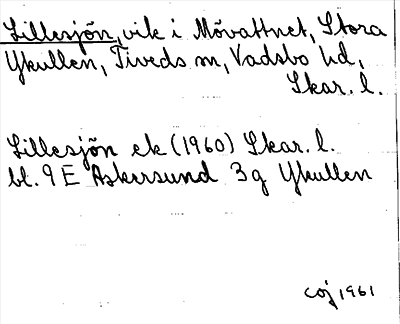 Lillesjön, vik i Mövattnet, Stora
Ykullen, Tiveds sn, Vadsbo hd,
Skar. l.
Lillesjön ek (1960) Skar. l.
bl. 9 E Askersund 3g Ykullen
COJ 1961